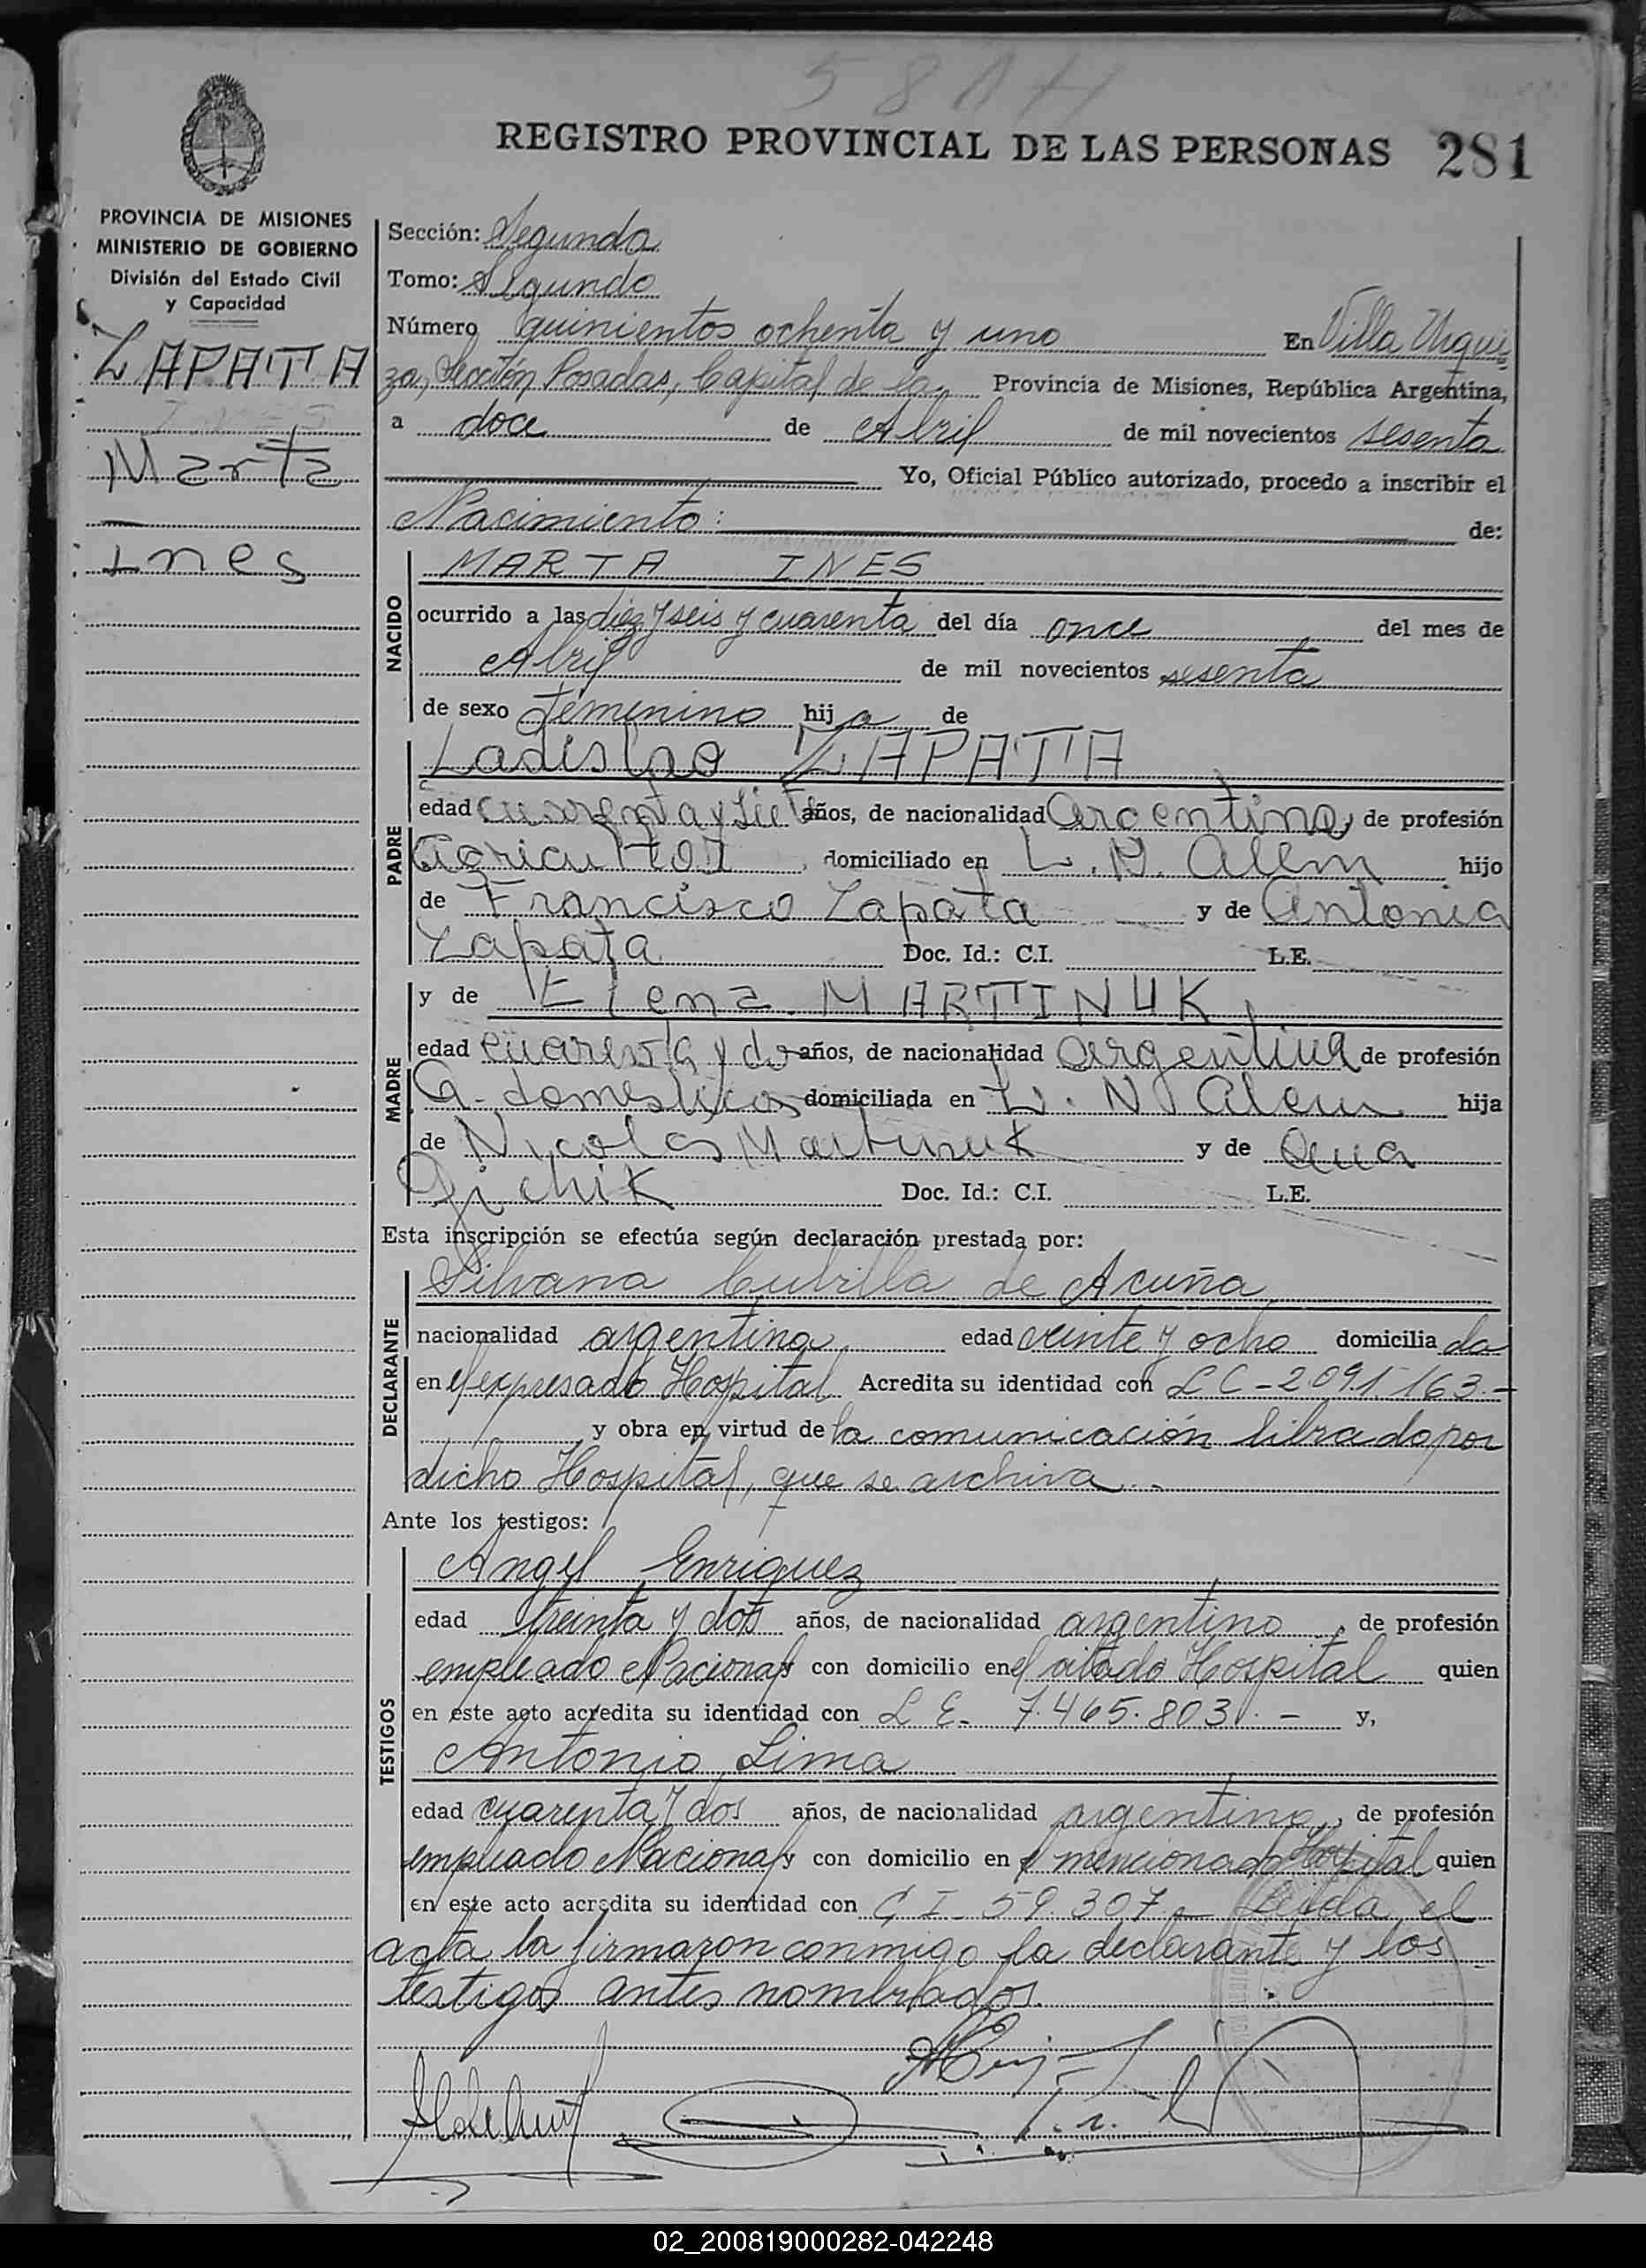 REGISTRO PROVINCIAL DE LAS PERSONAS 281
PROVINCIA DE MISIONES
MINISTERIO DE GOBIERNO
División del Estado Civil
y Capacidad
ZAPATA
Marta
Ines
Sección: Segunda
Tomo: Segundo
Número quinientos ochenta y uno En Villa Urqui
za, Sección Posadas, Capital de la Provincia de Misiones, República Argentina,
a doce de Abril de mil novecientos sesenta
Yo, Oficial Público autorizado, procedo a inscribir el
Nacimiento: de:
NACIDO
MARTA INES
ocurrido a las diez y seis y cuarenta del día once del mes de
Abril de mil novecientos sesenta
de sexo femenino hija de
PADRE
Ladislao ZAPATA
edad cuarenta y siete años, de nacionalidad argentina, de profesión
agricultor, domiciliado en L. N. Alem hijo
de Francisco Zapata y de Antonia
Zapata Doc. Id.: C.I. L.E.
MADRE
y de Elena MARTINUK
edad cuarenta y dos años, de nacionalidad argentina de profesión
Q. domesticos domiciliada en L. N. Alem hija
de Nicolas Martinuk y de Ana
Doc. Id.: C.I. L.E.
Esta inscripción se efectúa según declaración prestada por:
DECLARANTE
Silvana Cubilla de Acuña
nacionalidad argentina edad veinte y ocho domiciliada
en el expresado Hospital Acredita su identidad con LC-2091163.-
y obra en virtud de la comunicación librada por
dicho Hospital, que se archiva.-
Ante los testigos:
TESTIGOS
Angel Enriquez
edad treinta y dos años, de nacionalidad argentino, de profesión
empleado Nacional y con domicilio en el citado Hospital quien
en este acto acredita su identidad con L E- 7.465.803.- y,
Antonio Lima
edad cuarenta y dos años, de nacionalidad argentino, de profesión
empleado Nacional y con domicilio en el mencionado Hospital quien
en este acto acredita su identidad con C I- 59.307.- Leida el
acta la firmaron conmigo la declarante y los
testigos antes nombrados.
02_200819000282-042248